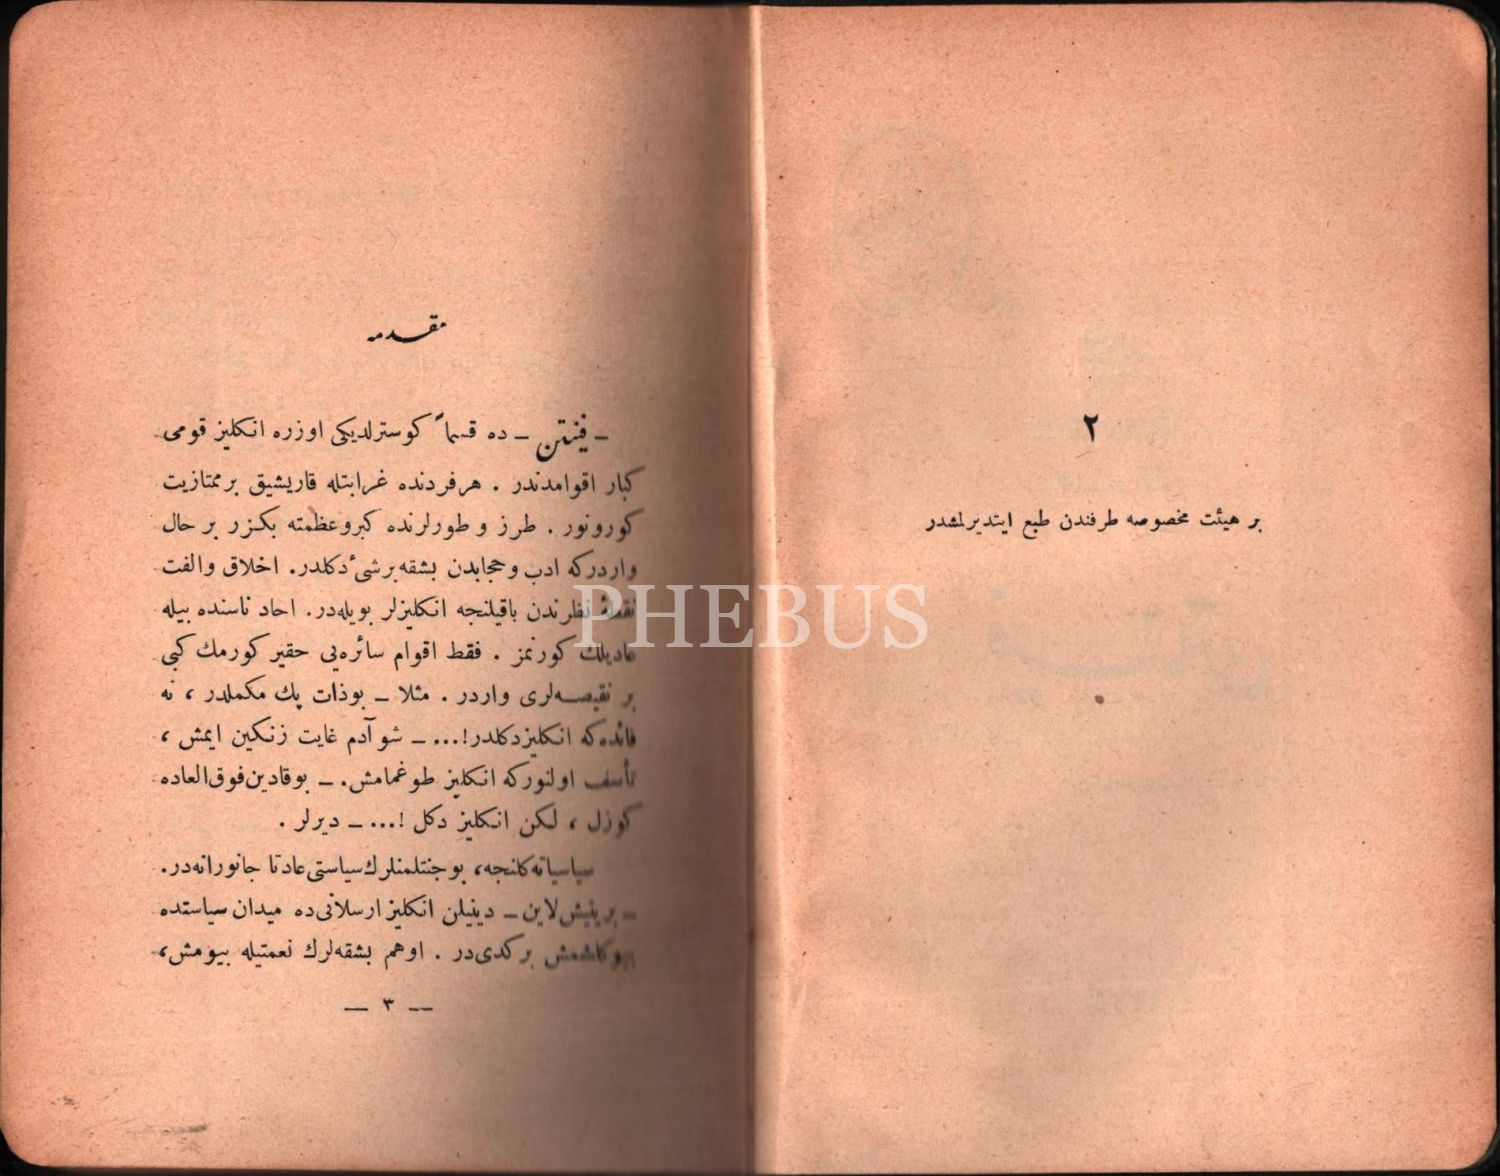 ٢
بر هيئت مخصوصه طرفندن طبع ايتديرلمشدر
مقدمه
ـ فينتن ـ ده قسماً كوسترلديكى اوزره انكليز قومى
كبار اقوامدندر . هرفردنده غرابتله قاريشيق برممتازيت
كورونور . طرز و طورلرنده كبروعظمته بكزر بر حال
واردركه ادب وحجابدن بشقه‌برشئ دكلدر. اخلاق والفت
نقطهٔ نظرندن باقيلنجه انكليزلر بويله‌در. احاد ناسنده بيله
عاديلك كورنمز . فقط اقوام سائره‌يى حقير كورمك كبى
بر نقيصه‌لرى واردر . مثلا ـ بوذات پك مكملدر ، نه
فائده‌كه انكليزدكلدر!... ـ شوآدم غايت زنكين ايمش ،
تأسف اولنوركه انكليز طوغمامش. ـ بوقادين فوق‌العاده
كوزل ، لكن انكليز دكل !... ـ ديرلر .
سياسياته‌كلنجه، بوجنتلمنلرك‌سياستى‌عادتا جانورانه‌در.
ـ بريتيش‌لاين ـ دينيلن انكليز ارسلانى‌ده ميدان سياستده
بركدى‌در . اوهم بشقه‌لرك نعمتيله بيومش،
— ٣ —
PHEBUS